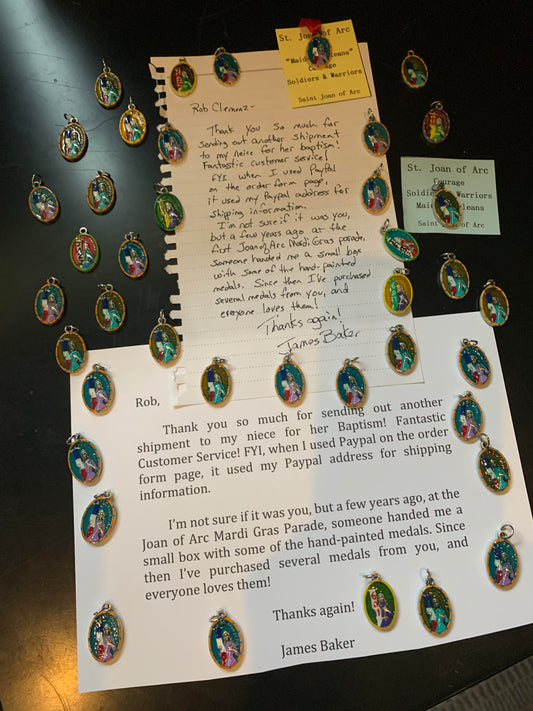 St. Joan of Arc
"Maid Orleans"
Courage
Soldiers & Warriors
Saint Joan of Arc
Rob Clemenz-
Thank You so much for
sending out another shipment
to my neice for her baptism!
Fantastic customer service!
FYI when I used PayPal
on the order form page,
it used my Paypal address for
shipping information.
I'm not sure if it was you,
but a few years ago at the
first Joan of Arc Mardi Gras parade,
someone handed me a small box
with some of the hand-painted
medals. Since then I've purchased
several medals from you, and
everyone loves them!
Thanks again!
James Baker
St. Joan of Arc
Courage
Soldiers Warriors
Maid Orleans
Saint Joan of Arc
Rob,
Thank you so much for sending out another
shipment to my niece for her Baptism! Fantastic
Customer Service! FYI, when I used Paypal on the order
form page, it used my Paypal address for shipping
information.
I'm not sure if it was you, but a few years ago, at the
Joan of Arc Mardi Gras Parade, someone handed me a
small box with some of the hand-painted medals. Since
then I've purchased several medals from you, and
everyone loves them!
Thanks again!
James Baker